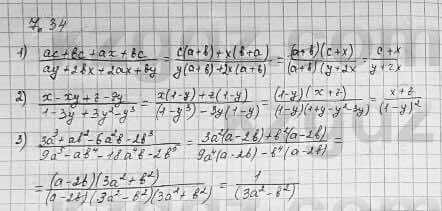 7. 34
1) (ac+bc+ax+bc)/(ay+2bx+2ax+by) = (c(a+b)+x(b+a))/(y(a+b)+2x(a+b)) = ((a+b)(c+x))/((a+b)(y+2x) = (c+x)/(y+2x)
2) (x-xy+z-zy)/(1-3y+3y²-y³) = (x(1-y)+z(1-y))/((1-y³)-3y(1-y)) = ((1-y)(x+z))/((1-y)(1+y-y²-3y)) = (x+z)/(1-y)²
3) (3a³+ab²-6a²b-2b³)/(9a⁵-ab⁴-18a⁴b-2b⁵) = (3a²(a-2b)+b²(a-2b))/(9a⁴(a-2b)-b⁴(a-2b)) =
= ((a-2b)(3a²+b²))/((a-2b)(3a²-b²)(3a²+b²)) = 1/(3a²-b²)